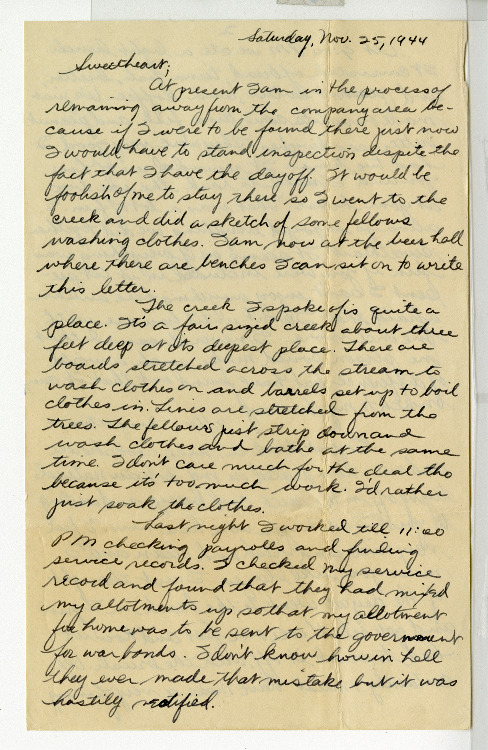 Saturday, Nov. 25, 1944
Sweetheart;
At present I am in the process of
remaining away from the company area be-
cause if I were to be found there just now
I would have to stand inspection despite the
fact that I have the day off. It would be
foolish of me to stay there so I went to the
creek and did a sketch of some fellows
washing clothes. I am now at the beer hall
where there are benches I can sit on to write
this letter.
The creek I spoke of is quite a
place. Its a fair sized creek about three
feet deep at its deepest place. There are
boards stretched across the stream to
wash clothes on and barrels set up to boil
clothes in. Lines are stretched from the
trees. The fellows just strip down and
wash clothes and bathe at the same
time. I don't care much for the deal tho
because its too much work. I'd rather
just soak the clothes.
Last night I worked till 11:00
PM checking payrolls and finding
service records. I checked my service
record and found that they had mixed
my allotments up so that my allotment
for home was to be sent to the government
for war bonds. I don't know how in hell
they ever made that mistake but it was
hastily rectified.